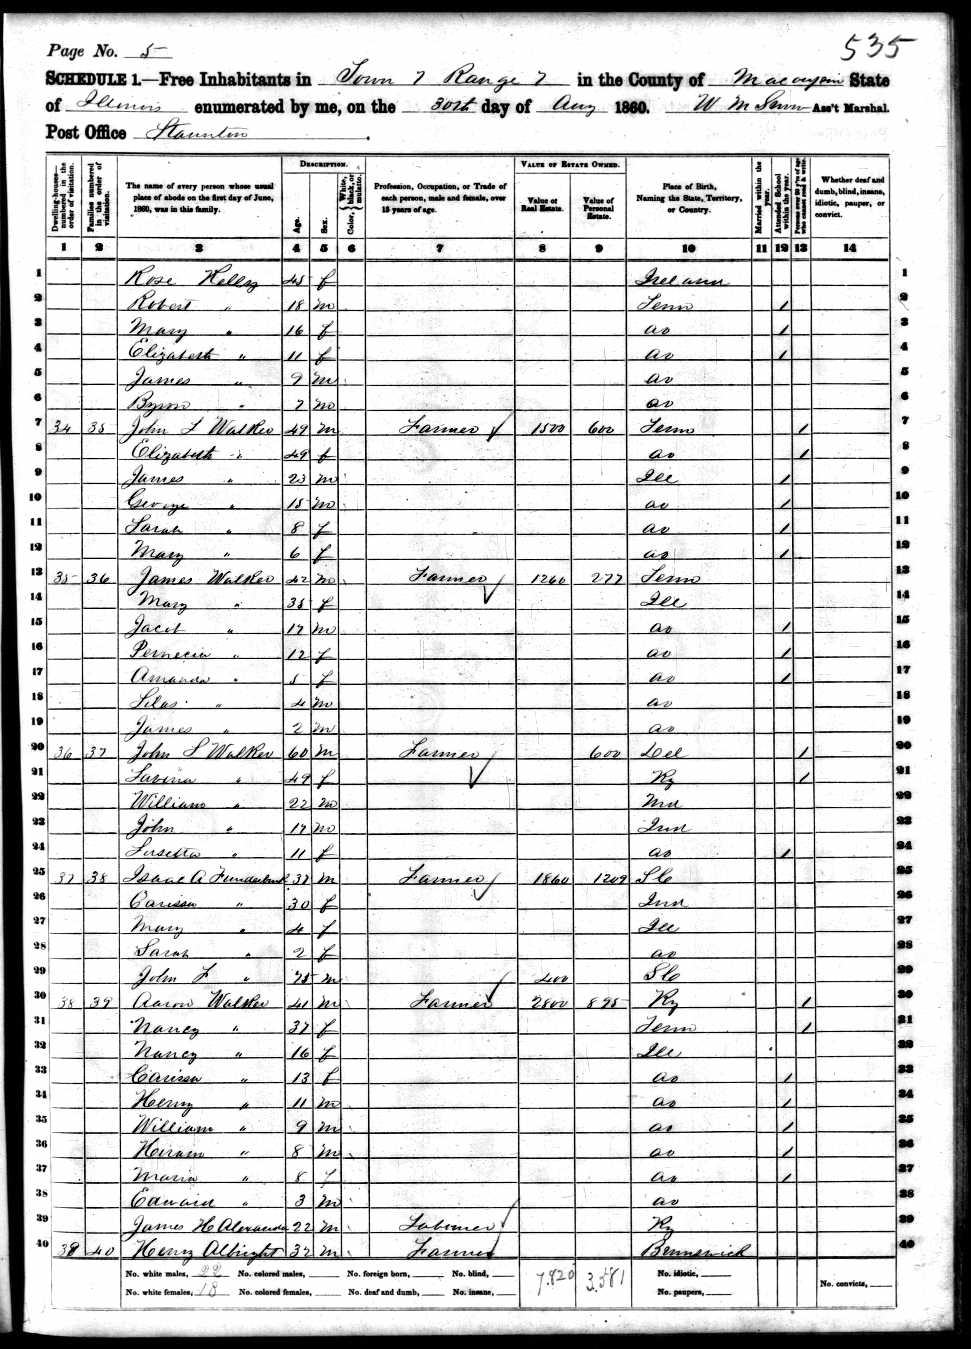 Page No. 5
535
SCHEDULE 1.—Free Inhabitants in Town 7 Range 7 in the County of Macoupin State
of Illinois enumerated by me, on the 30th day of Aug 1860. W M Ass't Marshal.
Post Office Staunton
Dwelling-houses—numbered in the order of visitation. Families numbered in the order of visitation. The name of every person whose usual place of abode on the first day of June, 1860, was in this family. DESCRIPTION. Age. Sex. Color, { White, black, or mulatto. Profession, Occupation, or Trade of each person, male and female, over 15 years of age. VALUE OF ESTATE OWNED. Value of Real Estate. Value of Personal Estate. Place of Birth, Naming the State, Territory, or Country. Married within the year. Attended School within the year. Persons over 20 y'rs of age who cannot read & write. Whether deaf and dumb, blind, insane, idiotic, pauper, or convict.
1 2 3 4 5 6 7 8 9 10 11 12 13 14
1 Rose Kelly 45 f Ireland 1
2 Robert " 18 m Tenn / 2
3 Mary " 16 f do / 3
4 Elizabeth " 11 f do / 4
5 James " 9 m do 5
6 Byron " 7 m do 6
7 34 35 John L Walker 49 m Farmer 1500 600 Tenn / 7
8 Elizabeth " 49 f do / 8
9 James " 23 m Ill / 9
10 George " 15 m do / 10
11 Sarah " 8 f do / 11
12 Mary " 6 f do / 12
13 35 36 James Walker 42 m Farmer 1260 277 Tenn 13
14 Mary " 35 f Ill 14
15 Jacob " 17 m do / 15
16 " 12 f do / 16
17 Amanda " 5 f do / 17
18 Silas " 4 m do 18
19 James " 2 m do 19
20 36 37 John S Walker 60 m Farmer 600 Del / 20
21 Lavina " 49 f Ky / 21
22 William " 22 m Ind 22
23 John " 17 m Ind 23
24 " 11 f do / 24
25 37 38 Isaac A Funderburk 37 m Farmer 1860 1209 S C 25
26 Carissa " 30 f Ind 26
27 Mary " 4 f Ill 27
28 Sarah " 2 f do 28
29 John F " 75 m 400 S C 29
30 38 39 Aaron Walker 41 m Farmer 2800 895 Ky / 30
31 Nancy " 37 f Tenn / 31
32 Nancy " 16 f Ill 32
33 Carissa " 13 f do / 33
34 Henry " 11 m do / 34
35 William " 9 m do / 35
36 Hiram " 8 m do / 36
37 Maria " 8 f do / 37
38 Edward " 3 m do 38
39 James H Alexander 22 m Laborer Ky 39
40 39 40 Henry Albright 32 m Farmer Brunswick 40
No. white males, 22 No. colored males, No. foreign born, No. blind, 7.820 3.581 No. idiotic,
No. white females, 18 No. colored females, No. deaf and dumb, No. insane, No. paupers, No. convicts,